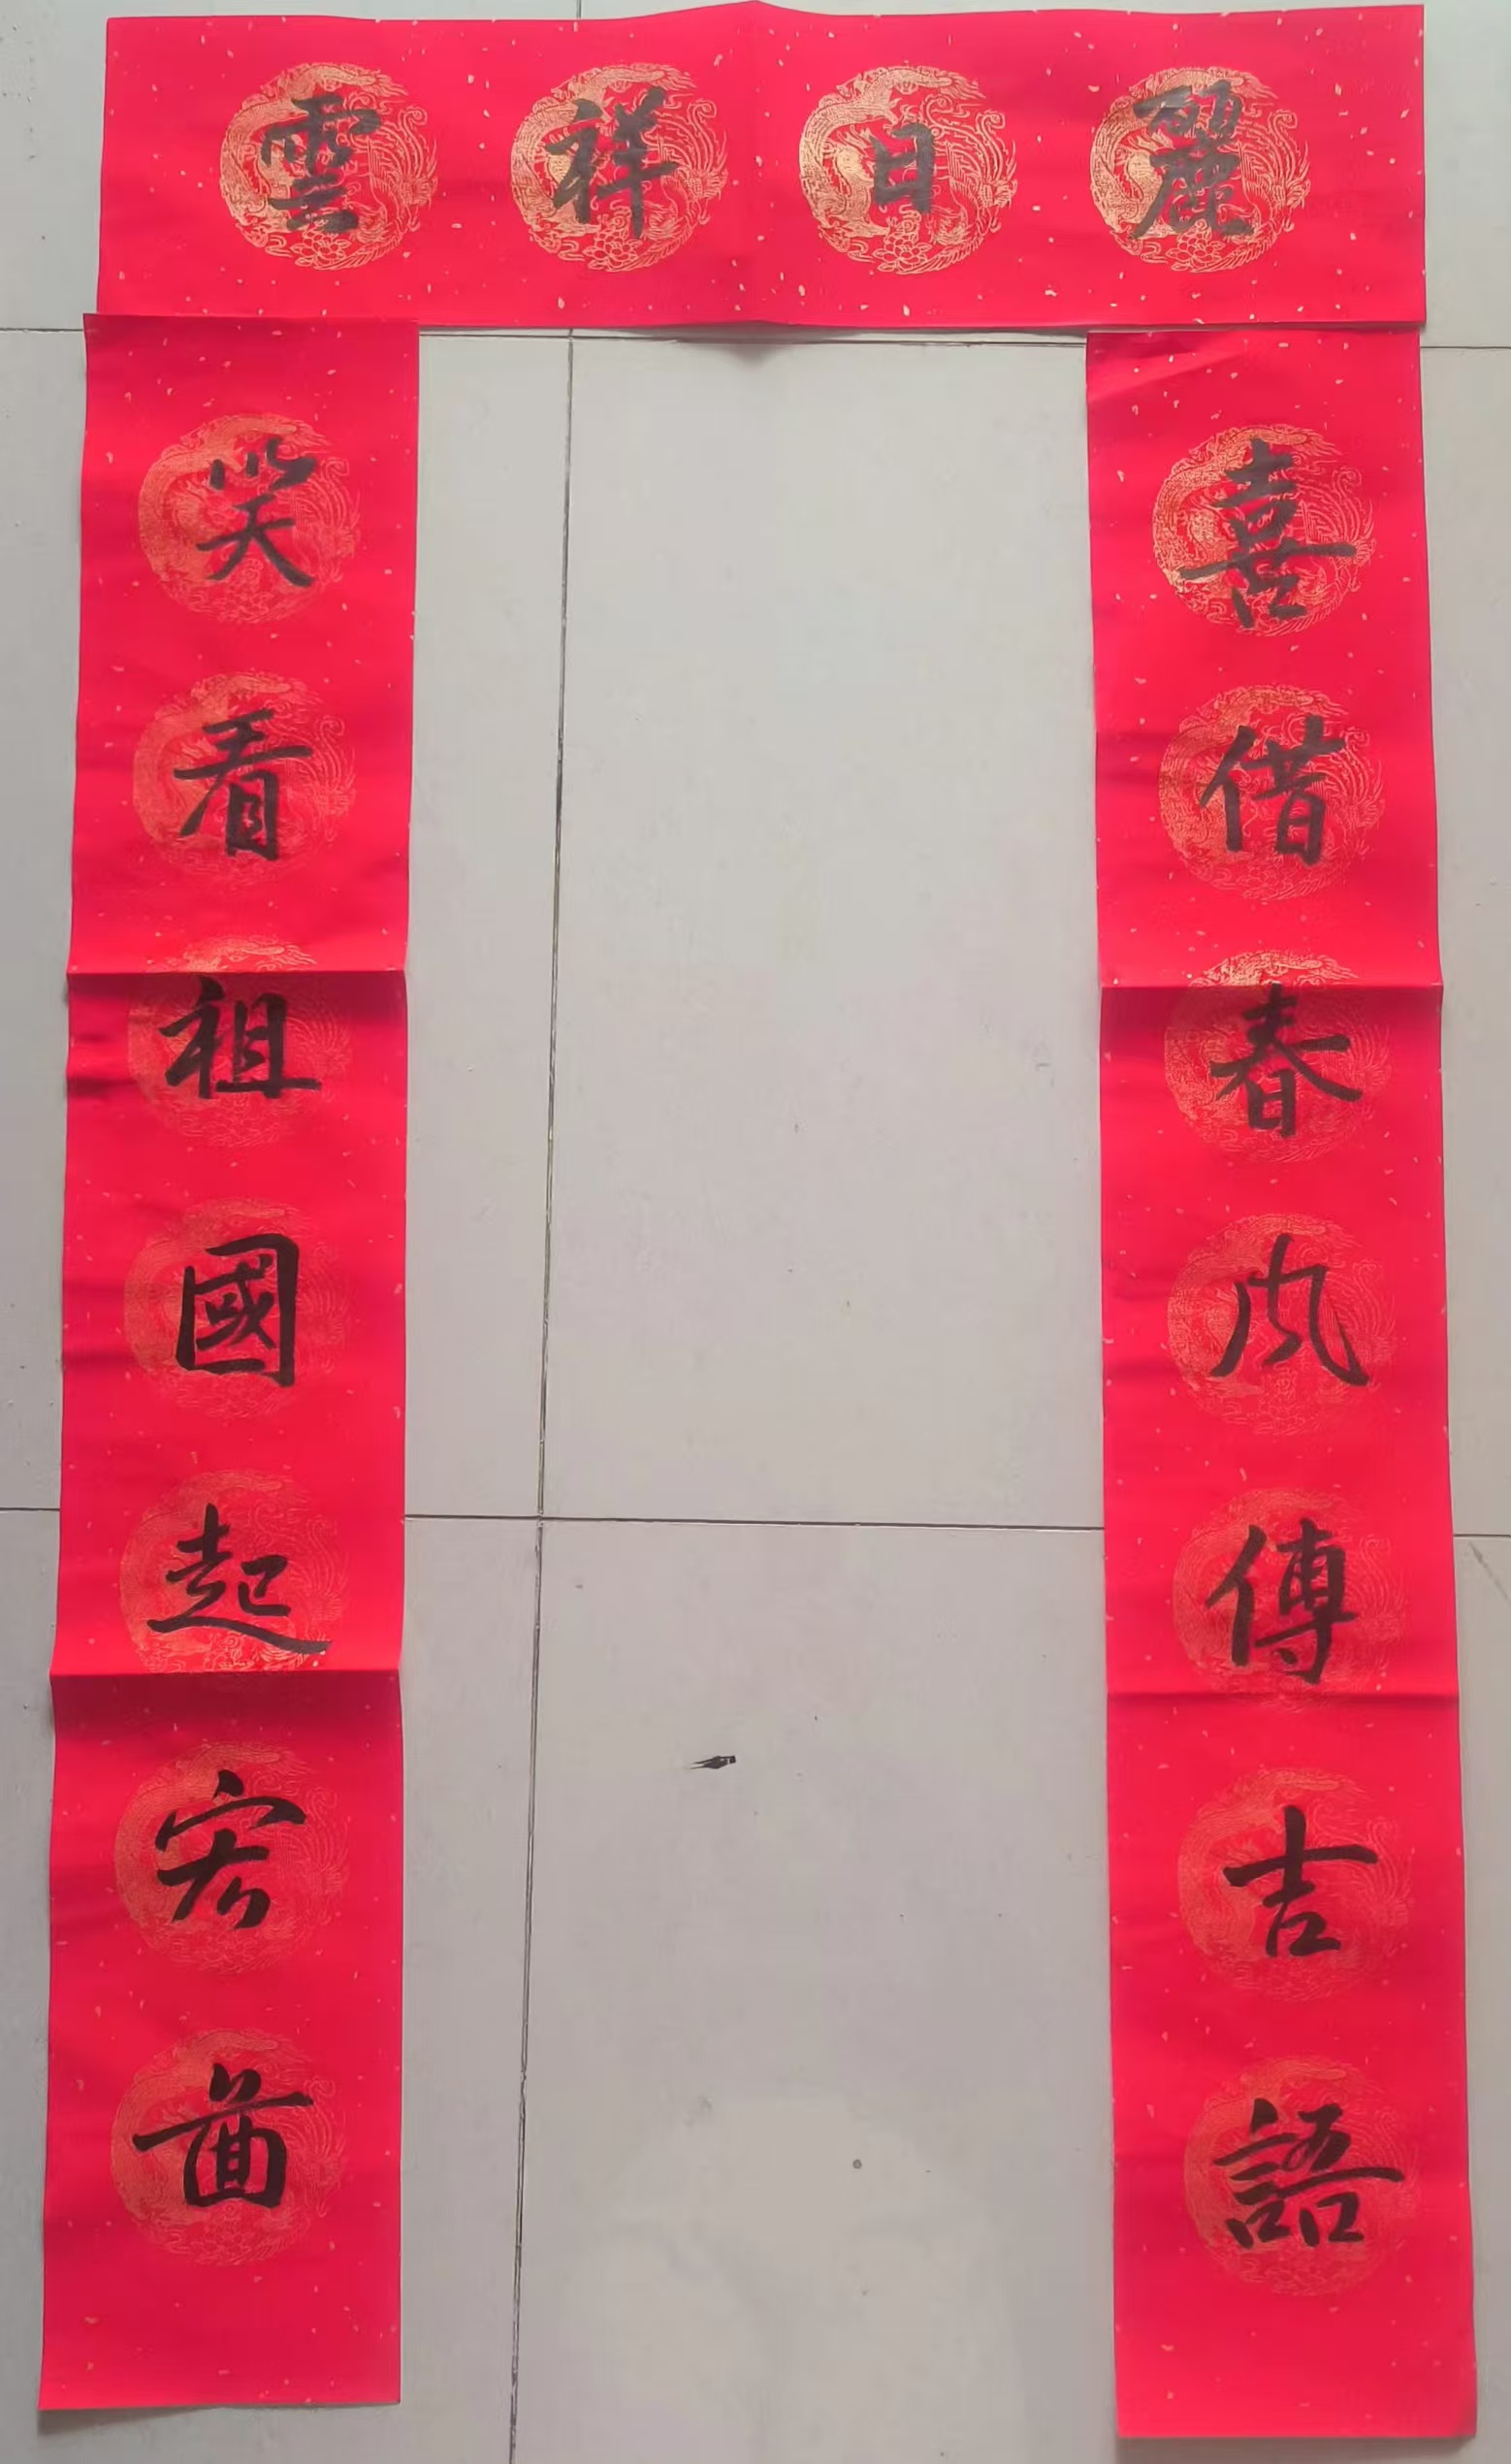 麗日祥雲
喜借春风傳吉語
笑看祖國起宏圖